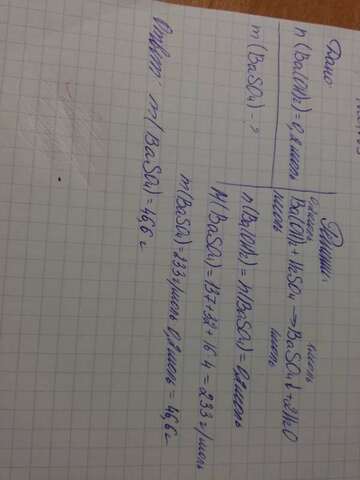 Дано
n(Ba(OH)2)=0,2моль
m(BaSO4)-?
Решение:
0,2моль
Ba(OH)2+H2SO4→BaSO4↓+2H2O
1моль
1моль
n(Ba(OH)2)=n(BaSO4)=0,2моль
M(BaSO4)=137+32+16·4=233г/моль
m(BaSO4)=233г/моль·0,2моль=46,6г
Ответ: m(BaSO4)=46,6г